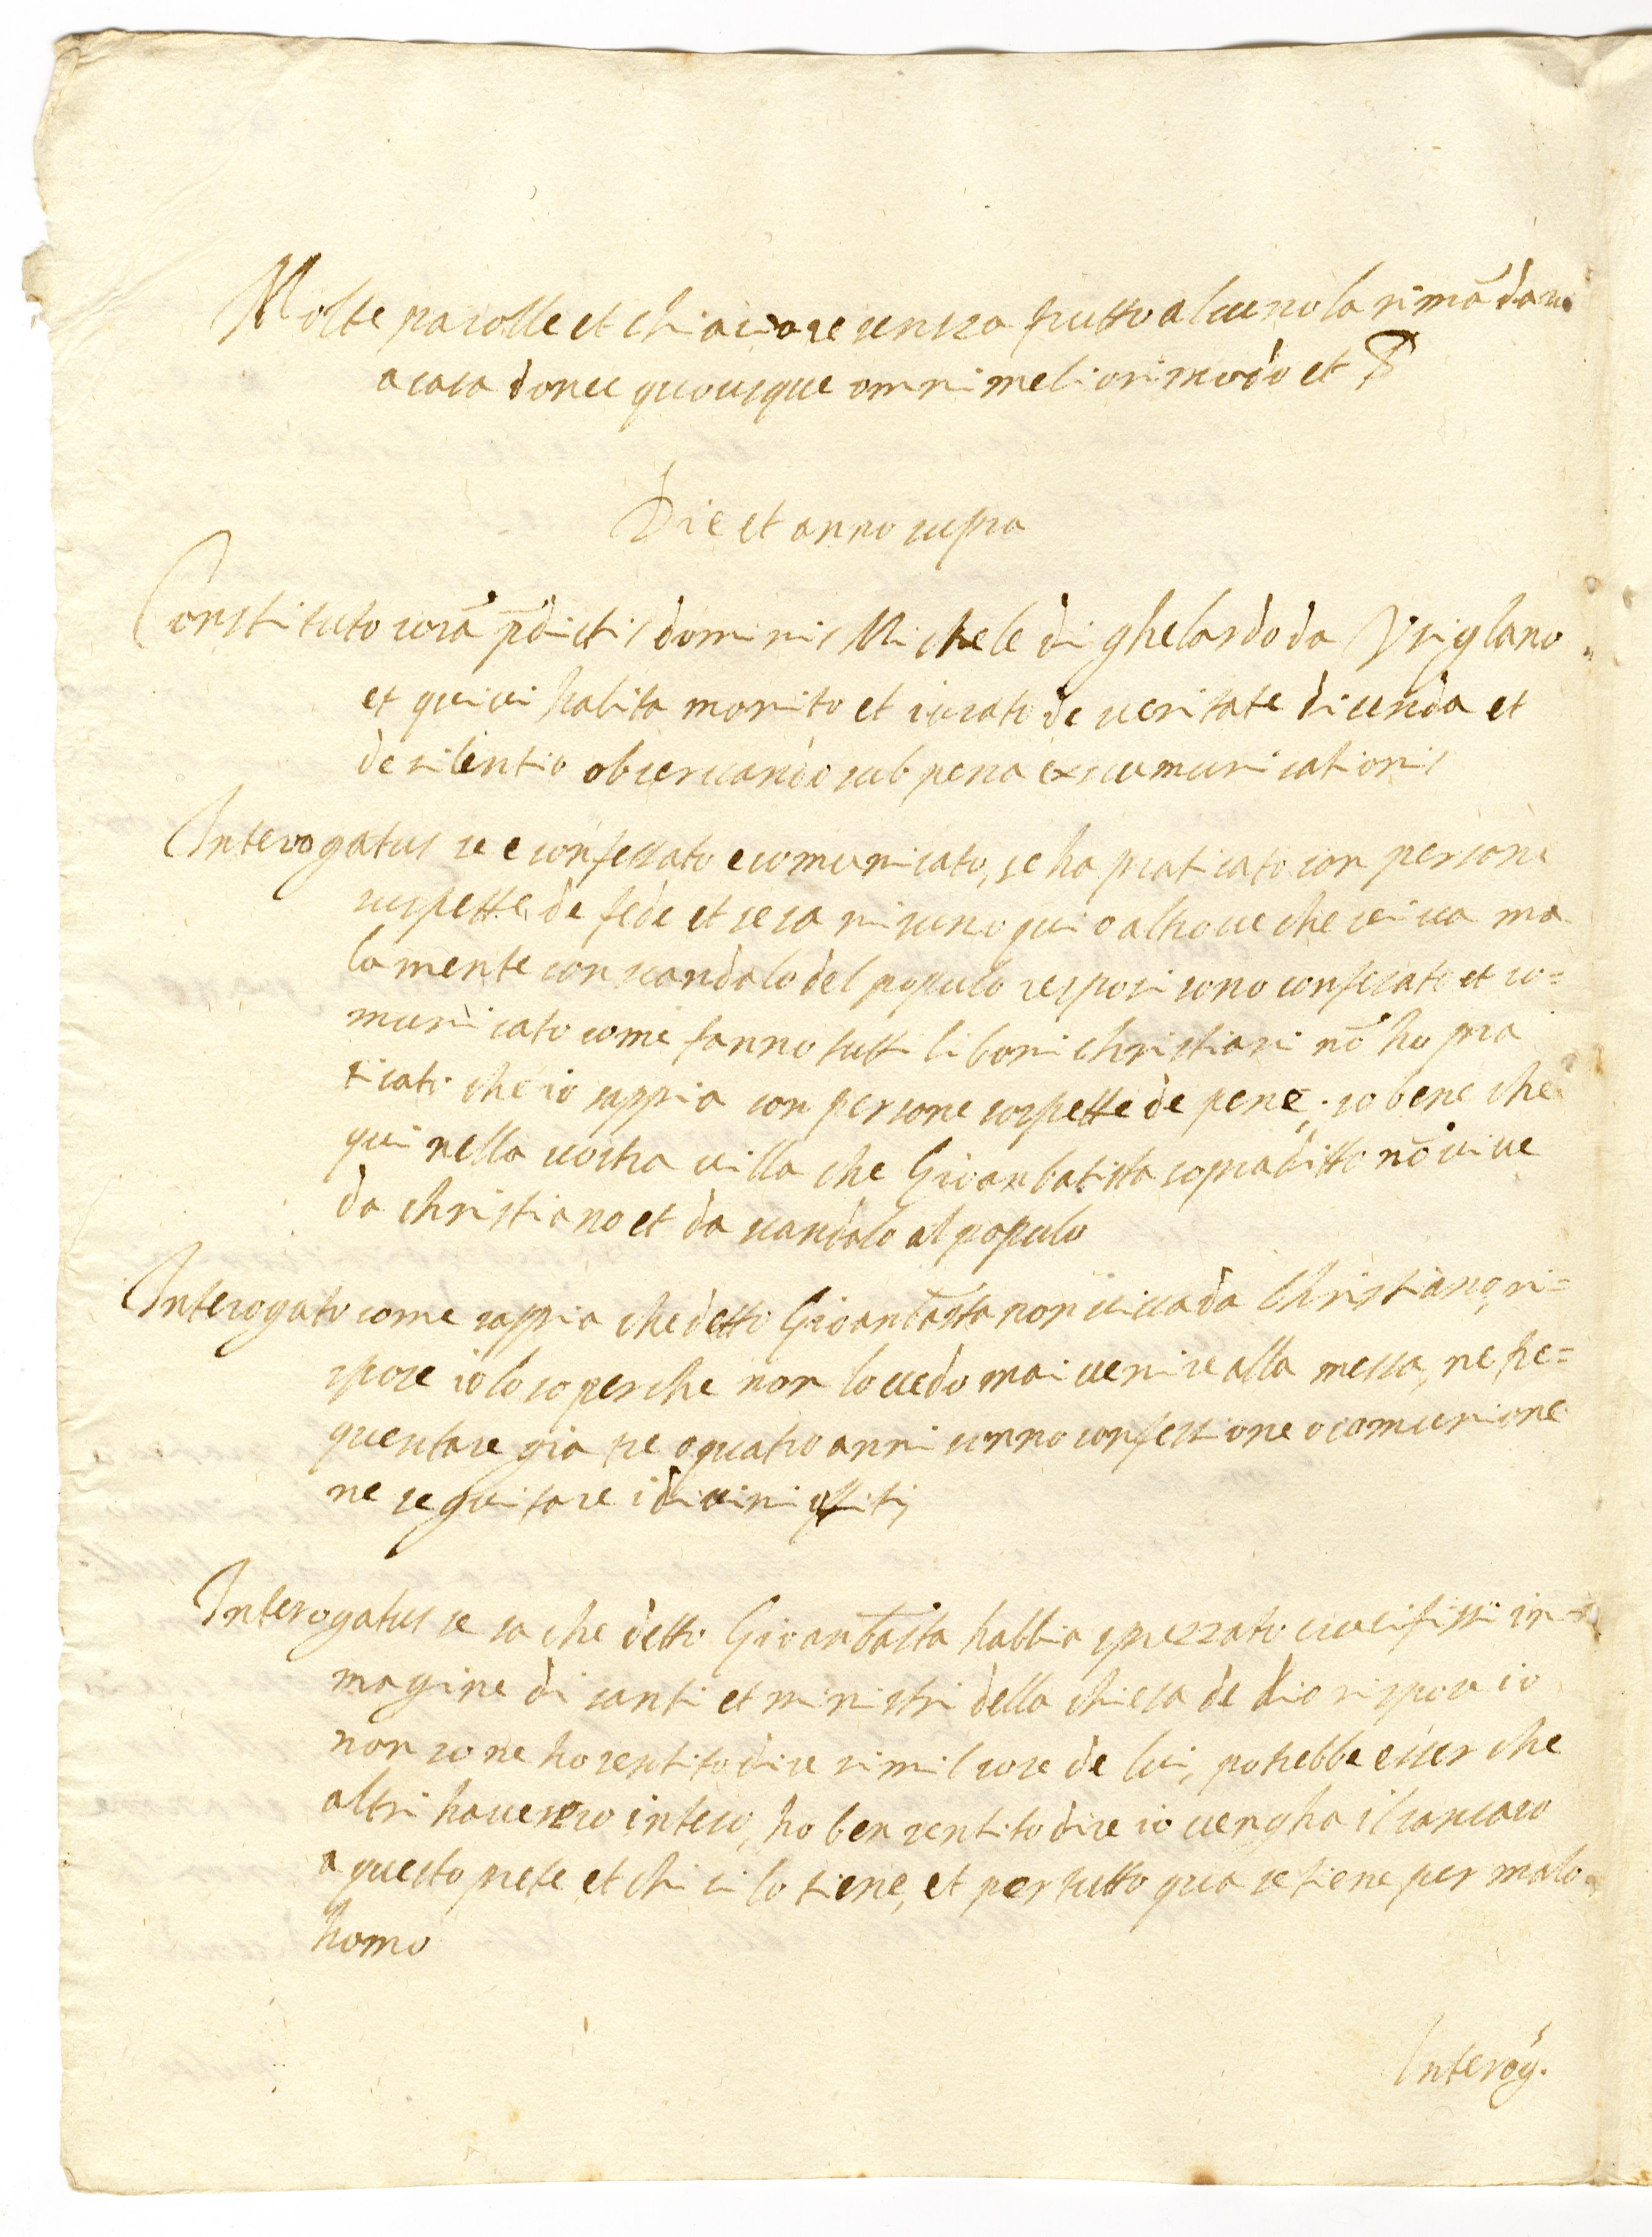 Molte parolle et chiaciare senza frutto alcuno la rimãdano
a casa donec quousque omni meliori modo et
Die et anno supra
Constituto corã p̃dictis dominis Michele di ghelardo da Vriglano
et quivi habita monito et iurato de veritate dicenda et
de silentio observando sub pena excumunicationis
Interogatus se e confessato e comunicato, se ha praticato con persone
suspette de fede et se sa nisuno qui o altrove che viva ma
lamente con scandalo del populo respose sono confesato et co=
municato come fanno tutti li boni christiani nõ ho pra
ticato che io sappia con persone sospette de pene; so bene che
qui nella vostra villa che Giovanbatista sopraditto nõ vive
da christiano et da scandalo al populo
Interogato come sappia che detto Giovanbasta non viva da Christiano, ri=
spose io lo so perche non lo vedo mai venire alla messa, ne fre=
quentare gia tre o quatro anni sonno confessione o comunione
ne seguitare i divini offiti,
Interogatus se sa che detto Giovanbasta habbia sprezzato crucifissi im=
magine di santi et ministri della chiesa de dio rispose io
non so ne ho sentito dire simil cose de lui, potrebbe esser che
altri havessero inteso, ho ben sentito dire io vengha il cancaro
a questo prete et chi ci lo tiene, et per tutto qua se tiene per malo
homo
Interog.